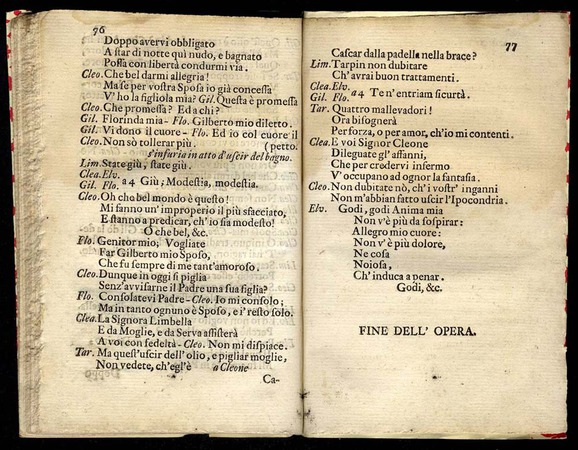 76
Doppo avervi obbligato
A star di notte quì nudo, e bagnato
Possa con libertà condurmi via.
Cleo. Che bel darmi allegria!
Ma se per vostra Sposa io già concessa
V'ho la figliola mia? Gil. Questa è promessa
Cleo. Che promessa? Ed a chi?
Gil. Florinda mia - Flo. Gilberto mio diletto.
Gil. Vi dono il cuore - Flo. Ed io col cuore il
Cleo. Non sò tollerar più. (petto.
s'infuria in atto d'uscir del bagno.
Lim. State giù, state giù.
Clea. Elv.
Gil. Flo. a 4 Giù; Modestia, modestia.
Cleo. Oh che bel mondo è questo!
Mi fanno un'improperio il più sfacciato,
E stanno a predicar, ch'io sia modesto!
O che bel, &c.
Flo. Genitor mio; Vogliate
Far Gilberto mio Sposo,
Che fu sempre di me tant'amoroso.
Cleo. Dunque in oggi si piglia
Senz'avvisarne il Padre una sua figlia?
Flo. Consolatevi Padre - Cleo. Io mi consolo;
Ma in tanto ognuno è Sposo, e i' resto solo.
Clea. La Signora Limbella
E da Moglie, e da Serva assisterà
A voi con fedeltà - Cleo. Non mi dispiace.
Tar. Ma quest'uscir dell'olio, e pigliar moglie,
Non vedete, ch'egl'è a Cleone
Ca-
77
Cascar dalla padella nella brace?
Lim. Tarpin non dubitare
Ch'avrai buon trattamenti.
Clea. Elv.
Gil. Flo. a 4 Te n'entriam sicurtà.
Tar. Quattro mallevadori!
Ora bisognerà
Per forza, o per amor, ch'io mi contenti.
Clea. E voi Signor Cleone
Dileguate gl'affanni,
Che per credervi infermo
V'occupano ad ognor la fantasia.
Cleo. Non dubitate nò, ch'i vostr'inganni
Non m'abbian fatto uscir l'Ipocondria.
Elv. Godi, godi Anima mia
Non v'è più da sospirar:
Allegro mio cuore:
Non v'è più dolore,
Ne cosa
Noiosa,
Ch'induca a penar.
Godi, &c.
FINE DELL' OPERA.